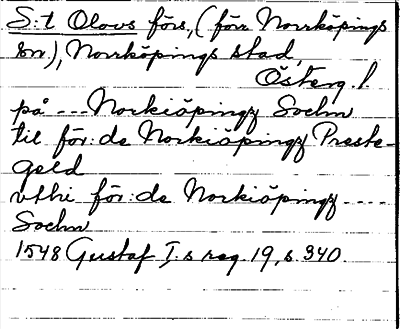 S:t Olovs förs, (förr Norrköpings
sn.), Norrköpings stad,
Österg. l.
på --- Norkiöpingz Sochn
til för:de Norkiöpingz Preste-
geld
vthi för:de Norkiöpingz ----
Sochn
1548 Gustaf I.s reg. 19, s. 340.